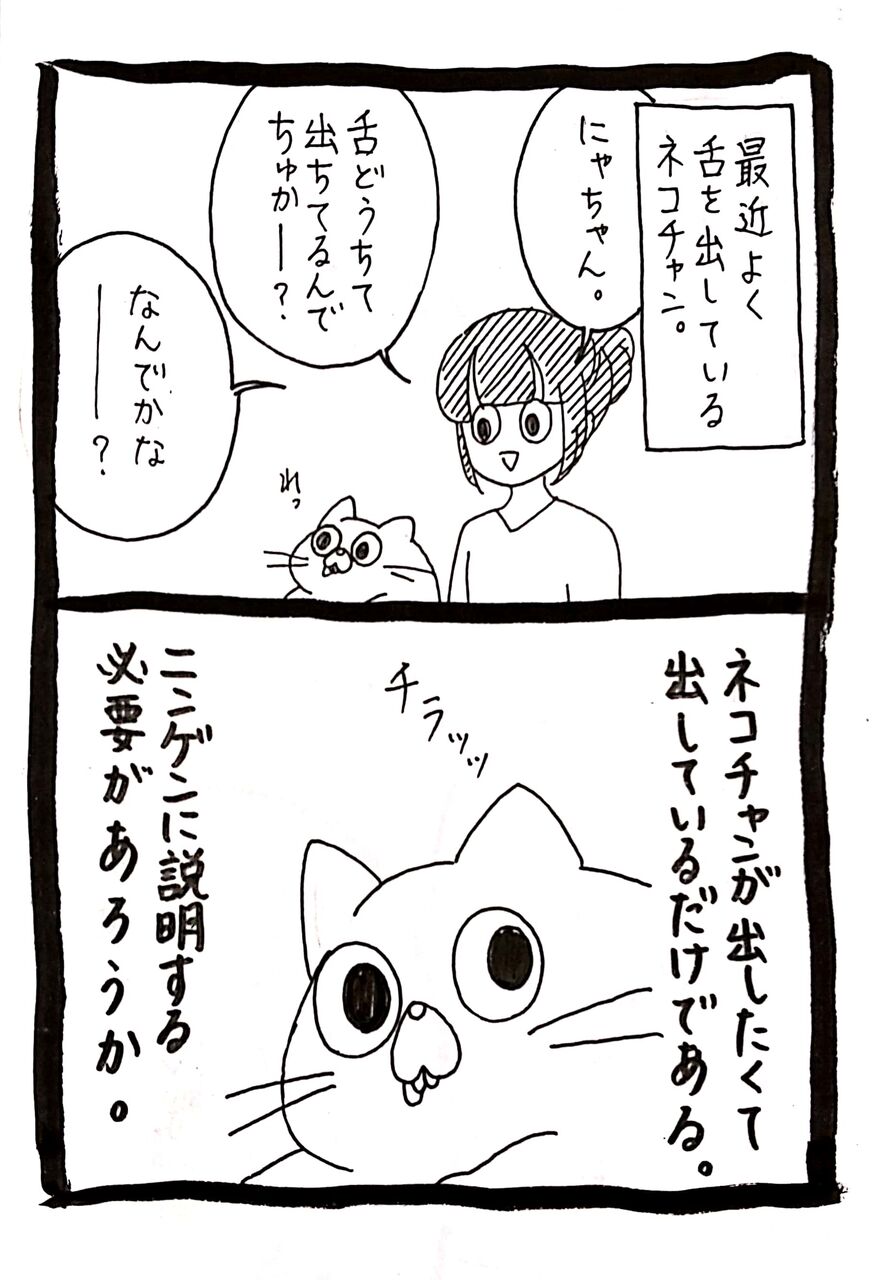 最近よく
舌を出している
ネコチャン。
にゃちゃん。
舌どうちて
出ちてるんで
ちゅかー？
なんでかな
ー？
れっ
ネコチャンが出したくて
出しているだけである。
チラッッ
ニンゲンに説明する
必要があろうか。